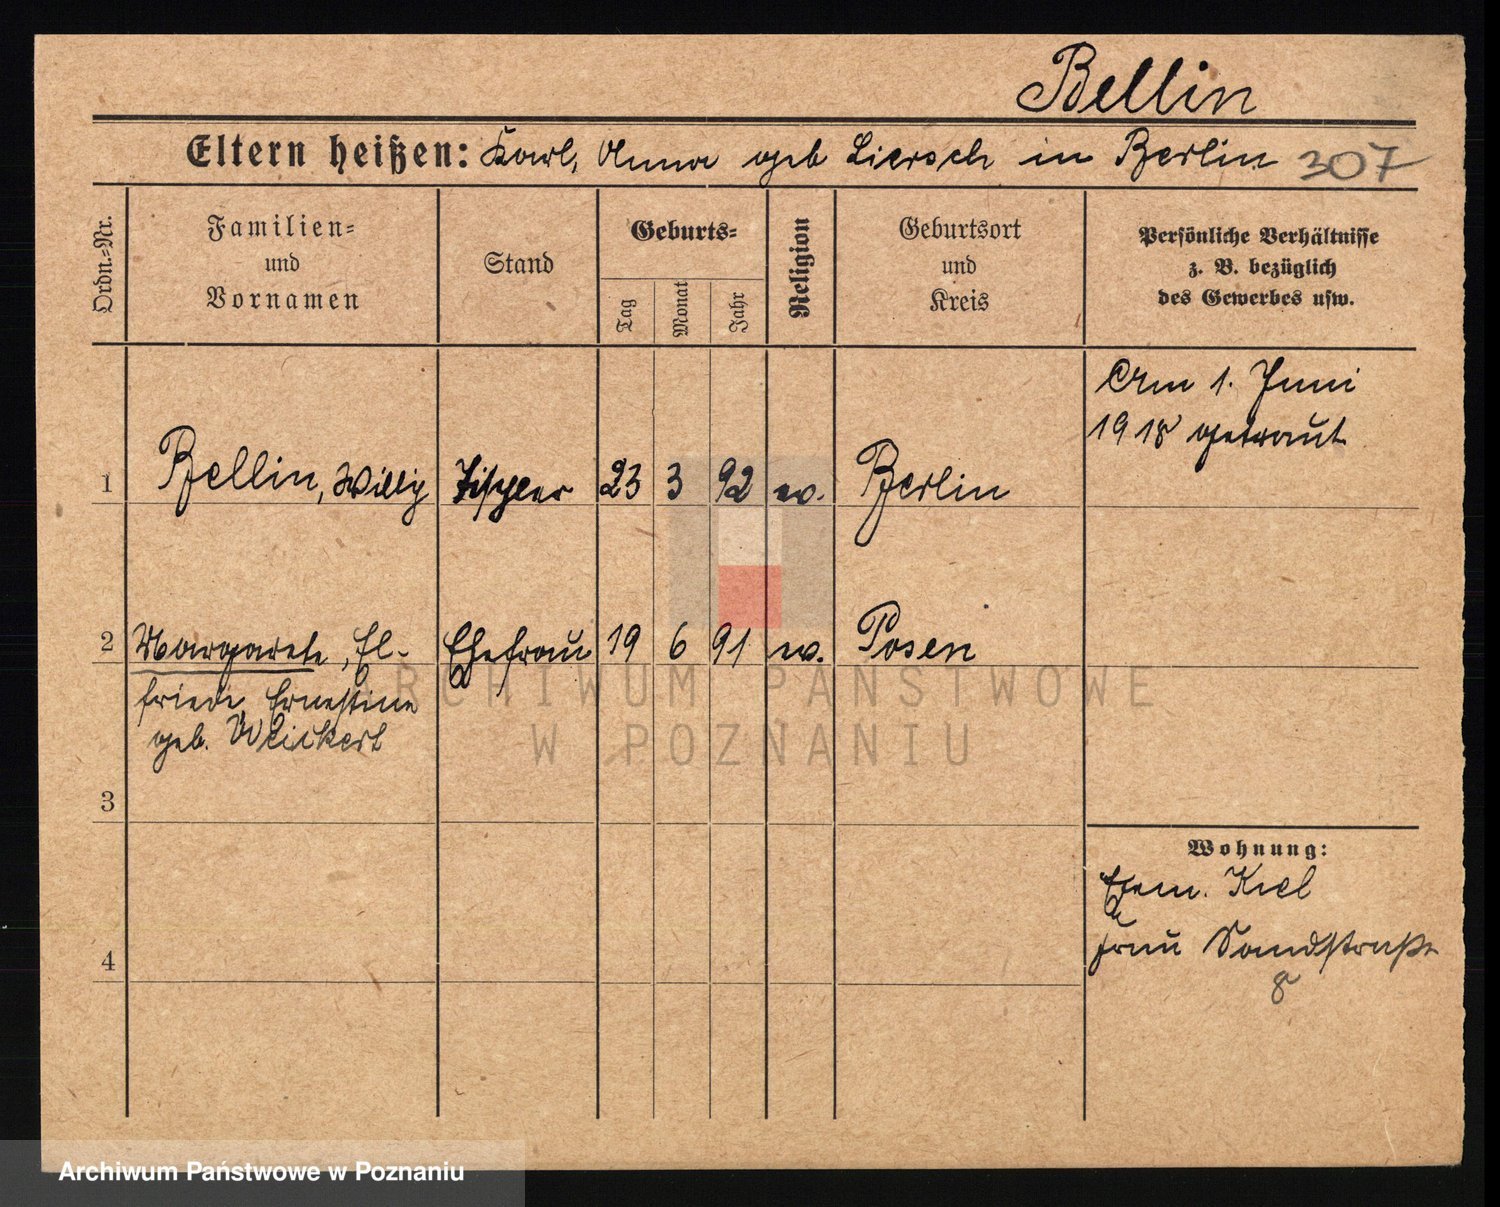 Bellin
Eltern heißen: Karl, Anna geb Liersch in Berlin 307
Ordn.=Nr.
Familien=
und
Vornamen
Stand
Geburts=
Tag
Monat
Jahr
Religion
Geburtsort
und
Kreis
Persönliche Verhältnisse
z. B. bezüglich
des Gewerbes usw.
Am 1. Juni
1918 getraut
1 Bellin, Willy Tischler 23 3 92 ev. Berlin
2 Margarete, El-
friede, Ernestine
geb. Weickert
Ehefrau 19 6 91 ev. Posen
3
4
Wohnung:
Ehem. Kiel
Frau Sandstraße
8
ARCHIWUM PAŃSTWOWE
W POZNANIU
Archiwum Państwowe w Poznaniu